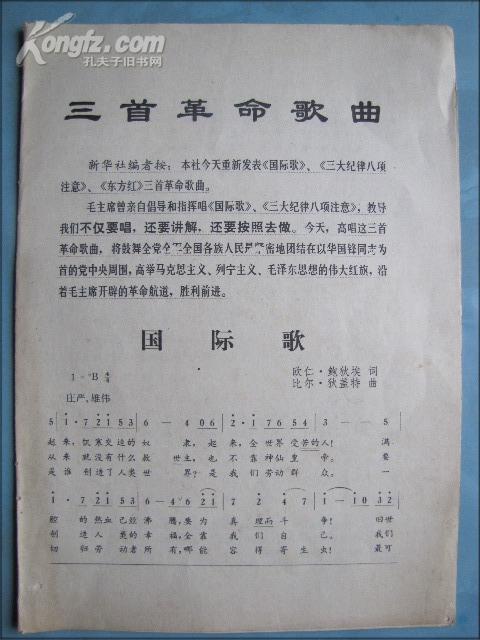 Kongfz.com
孔夫子旧书网
三首革命歌曲
新华社编者按：本社今天重新发表《国际歌》、《三大纪律八项
注意》、《东方红》三首革命歌曲。
毛主席曾亲自倡导和指挥唱《国际歌》、《三大纪律八项注意》，教导
我们不仅要唱，还要讲解，还要按照去做。今天，高唱这三首
革命歌曲，将鼓舞全党全军全国各族人民更紧密地团结在以华国锋同志为
首的党中央周围，高举马克思主义、列宁主义、毛泽东思想的伟大红旗，沿
着毛主席开辟的革命航道，胜利前进。
国际歌
1=♭B 4/4
欧仁·鲍狄埃 词
庄严、雄伟
比尔·狄盖特 曲
5 | 1· 7 2 1 5 3 | 6 — 4 0 6 | 2· 1 7 6 5 4 | 3 — — 5
起来，饥寒交迫的奴 隶，起来，全世界受苦的人！ 满
从来就没有什么救 世主，也不靠神仙皇 帝。 要
是谁创造了人类世 界？是我们劳动群众。 一
1· 7 2 1 5 3 | 6 — 4 6 2 1 | 7 2 4 7 | 1 — 1 0 3 2
腔的热血已经沸 腾，要为真理而斗 争！ 旧世
创造人类的幸 福，全靠我们自 己。 我们
切归劳动者所 有，哪能容得寄生 虫！ 最可